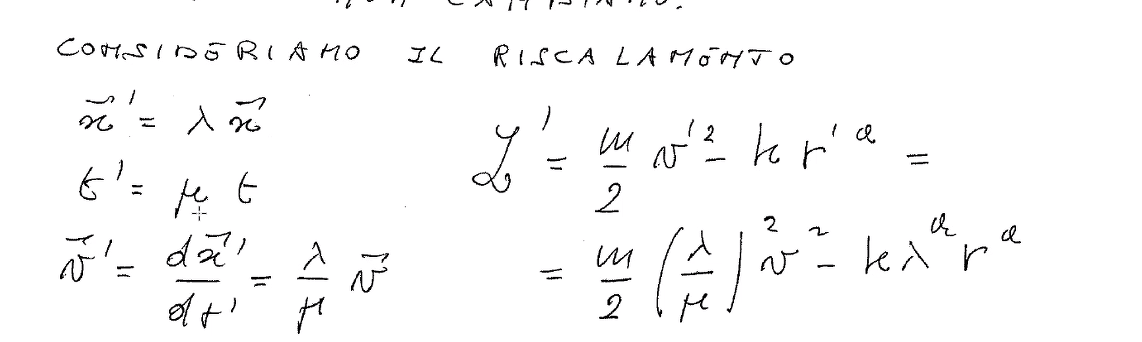 CONSIDERIAMO IL RISCALAMENTO
x⃗' = λ x⃗
t' = μ t
v⃗' = dx⃗'/dt' = λ/μ v⃗
L' = m/2 v'² - k r'^α =
= m/2 (λ/μ)² v² - k λ^α r^α